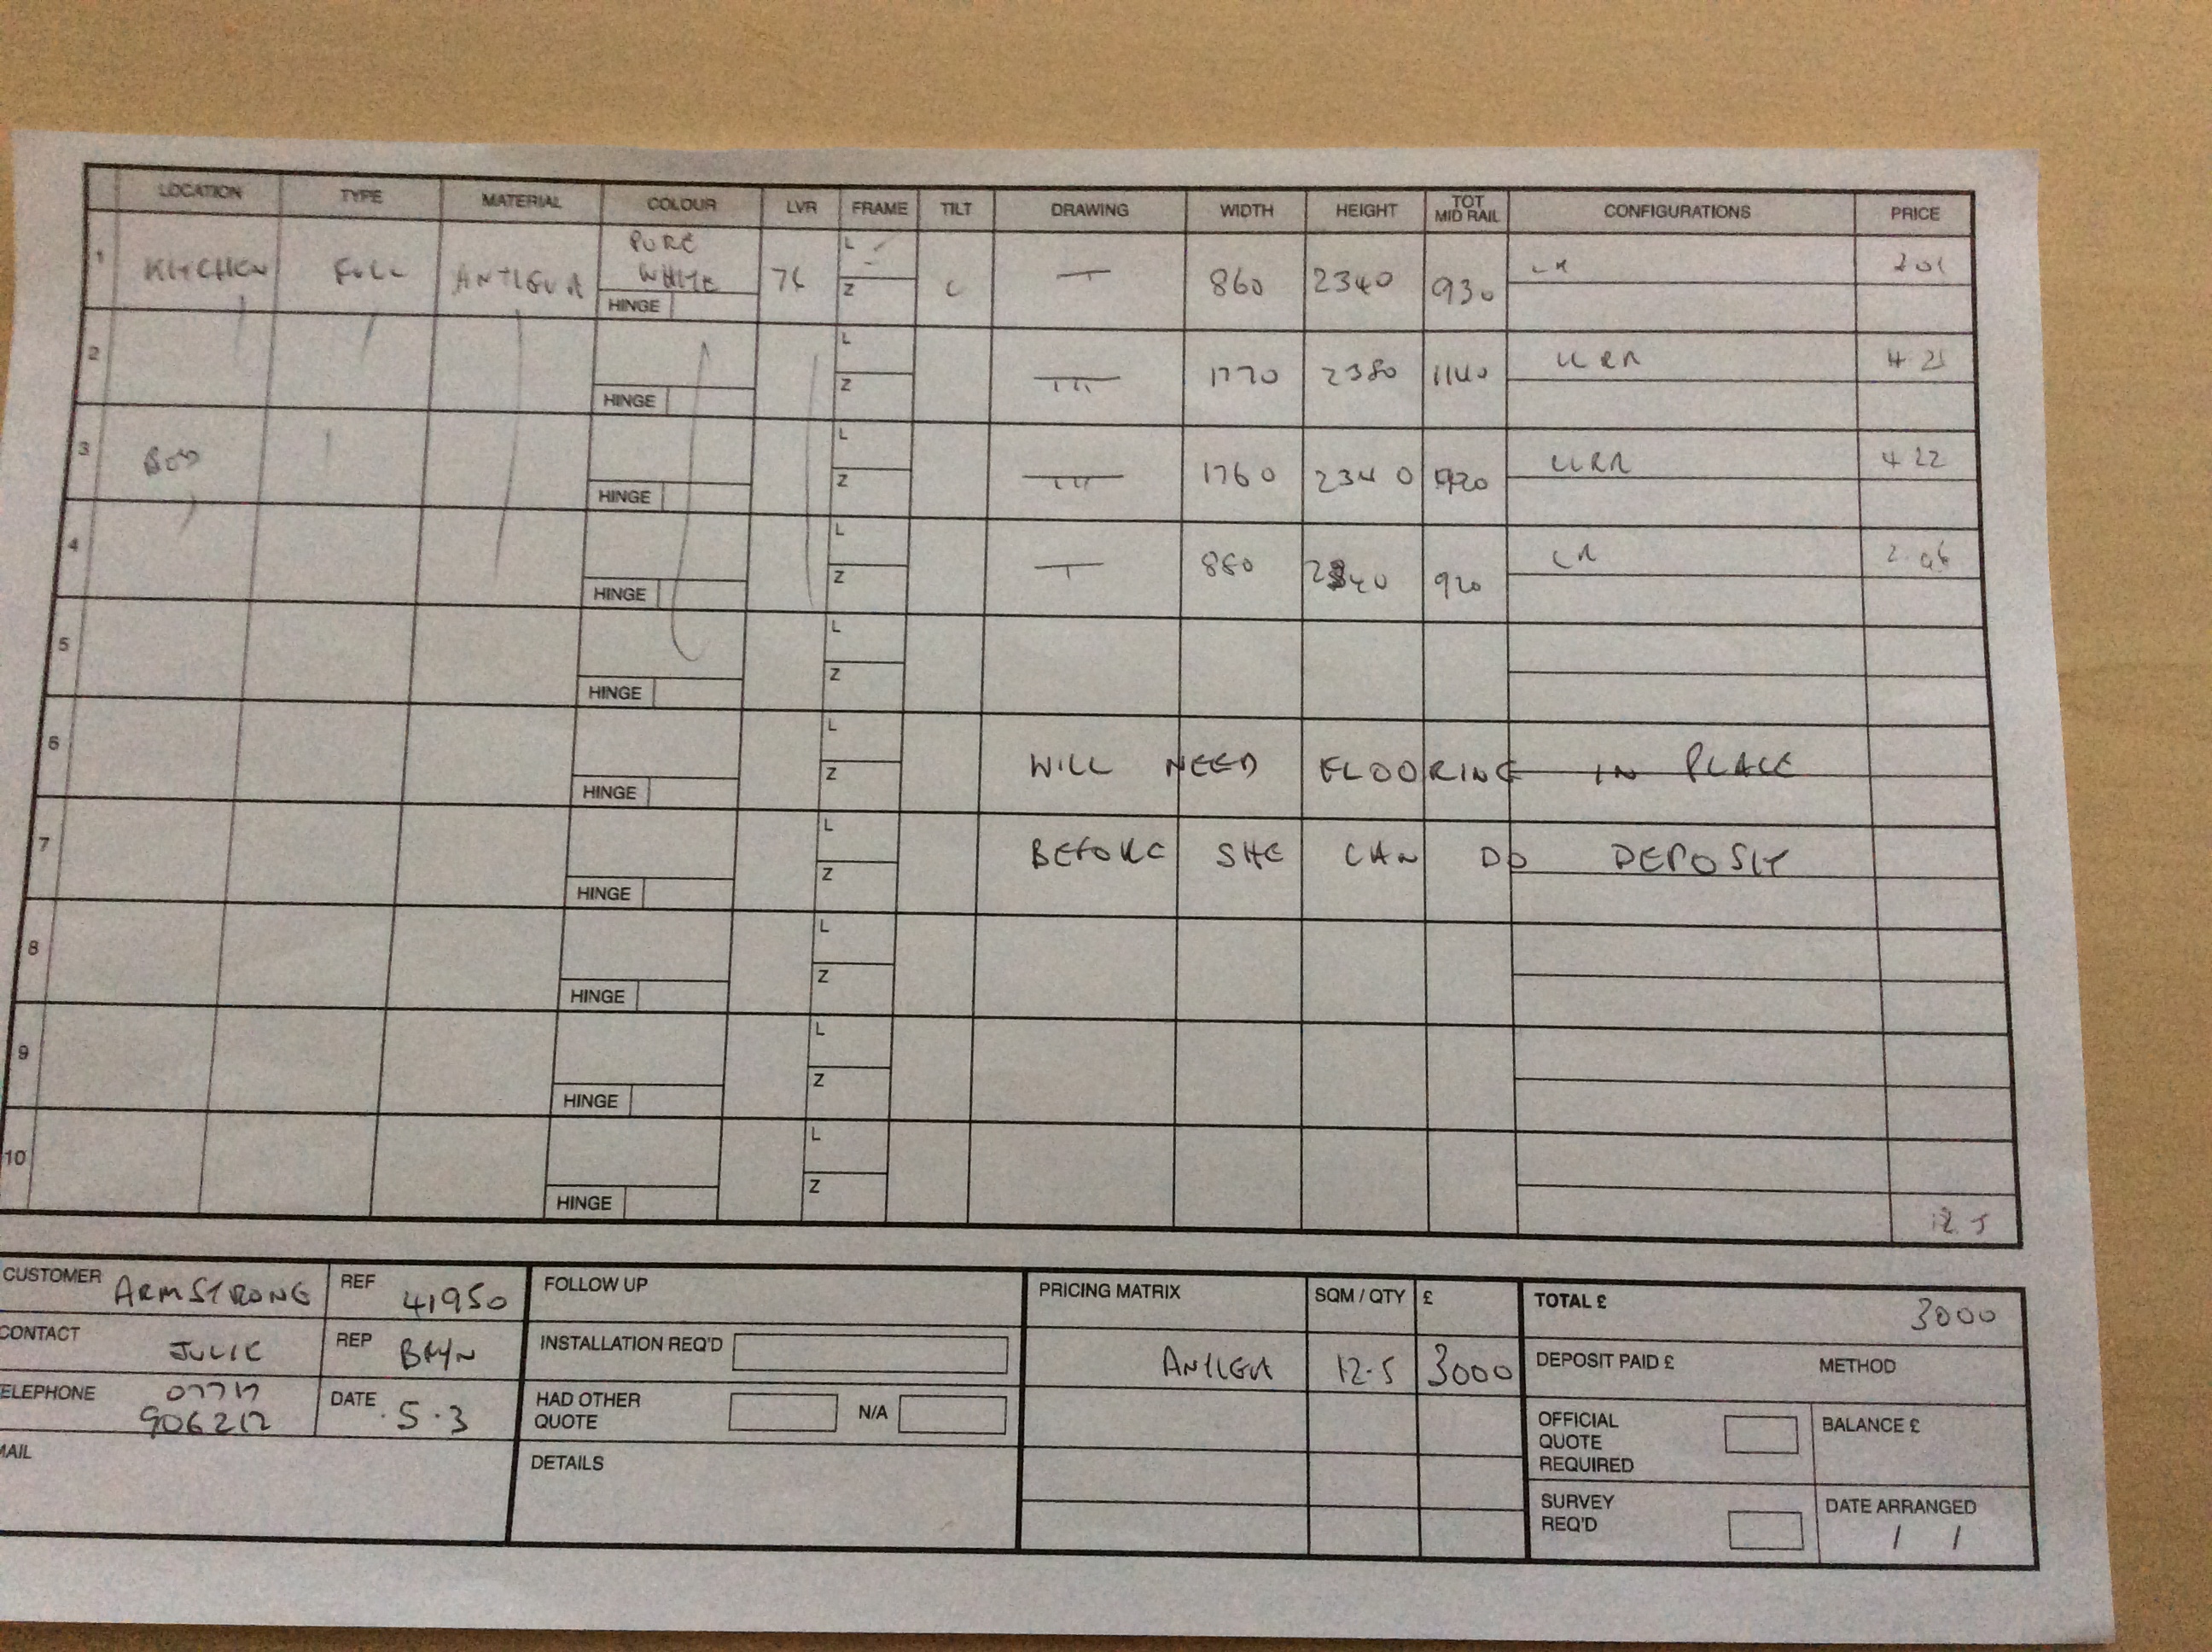 LOCATION TYPE MATERIAL COLOUR LVR FRAME TILT DRAWING WIDTH HEIGHT TOT MID RAIL CONFIGURATIONS PRICE
1 KITCHEN FULL ANTIGUA PURE WHITE 76 L Z C 860 2340 930 LR 201
HINGE
2 L Z 1770 2380 1140 LLRR 4.21
HINGE
3 BED L Z 1760 2340 920 LLRR 4.12
HINGE
4 L Z 880 2340 920 LR 2.06
HINGE
5 L Z
HINGE
6 L Z WILL NEED FLOORING IN PLACE
HINGE
7 L Z BEFORE SHE CAN DO DEPOSIT
HINGE
8 L Z
HINGE
9 L Z
HINGE
10 L Z
HINGE 12.5
CUSTOMER ARMSTRONG REF 41950 FOLLOW UP PRICING MATRIX SQM / QTY £ TOTAL £ 3000
CONTACT JULIE REP BRYN INSTALLATION REQ'D ANTIGUA 12.5 3000 DEPOSIT PAID £ METHOD
ELEPHONE 07717 906212 DATE 5.3 HAD OTHER QUOTE N/A OFFICIAL QUOTE REQUIRED BALANCE £
MAIL DETAILS SURVEY REQ'D DATE ARRANGED / /